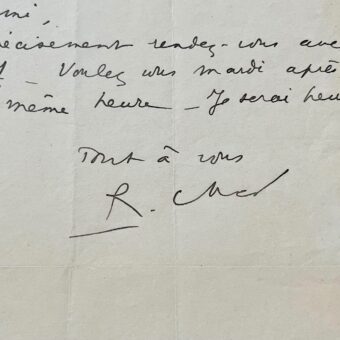 écisément rendez-vous avec
– Voulez vous mardi après
même heure – Je serai heu
Tout à vous
R.